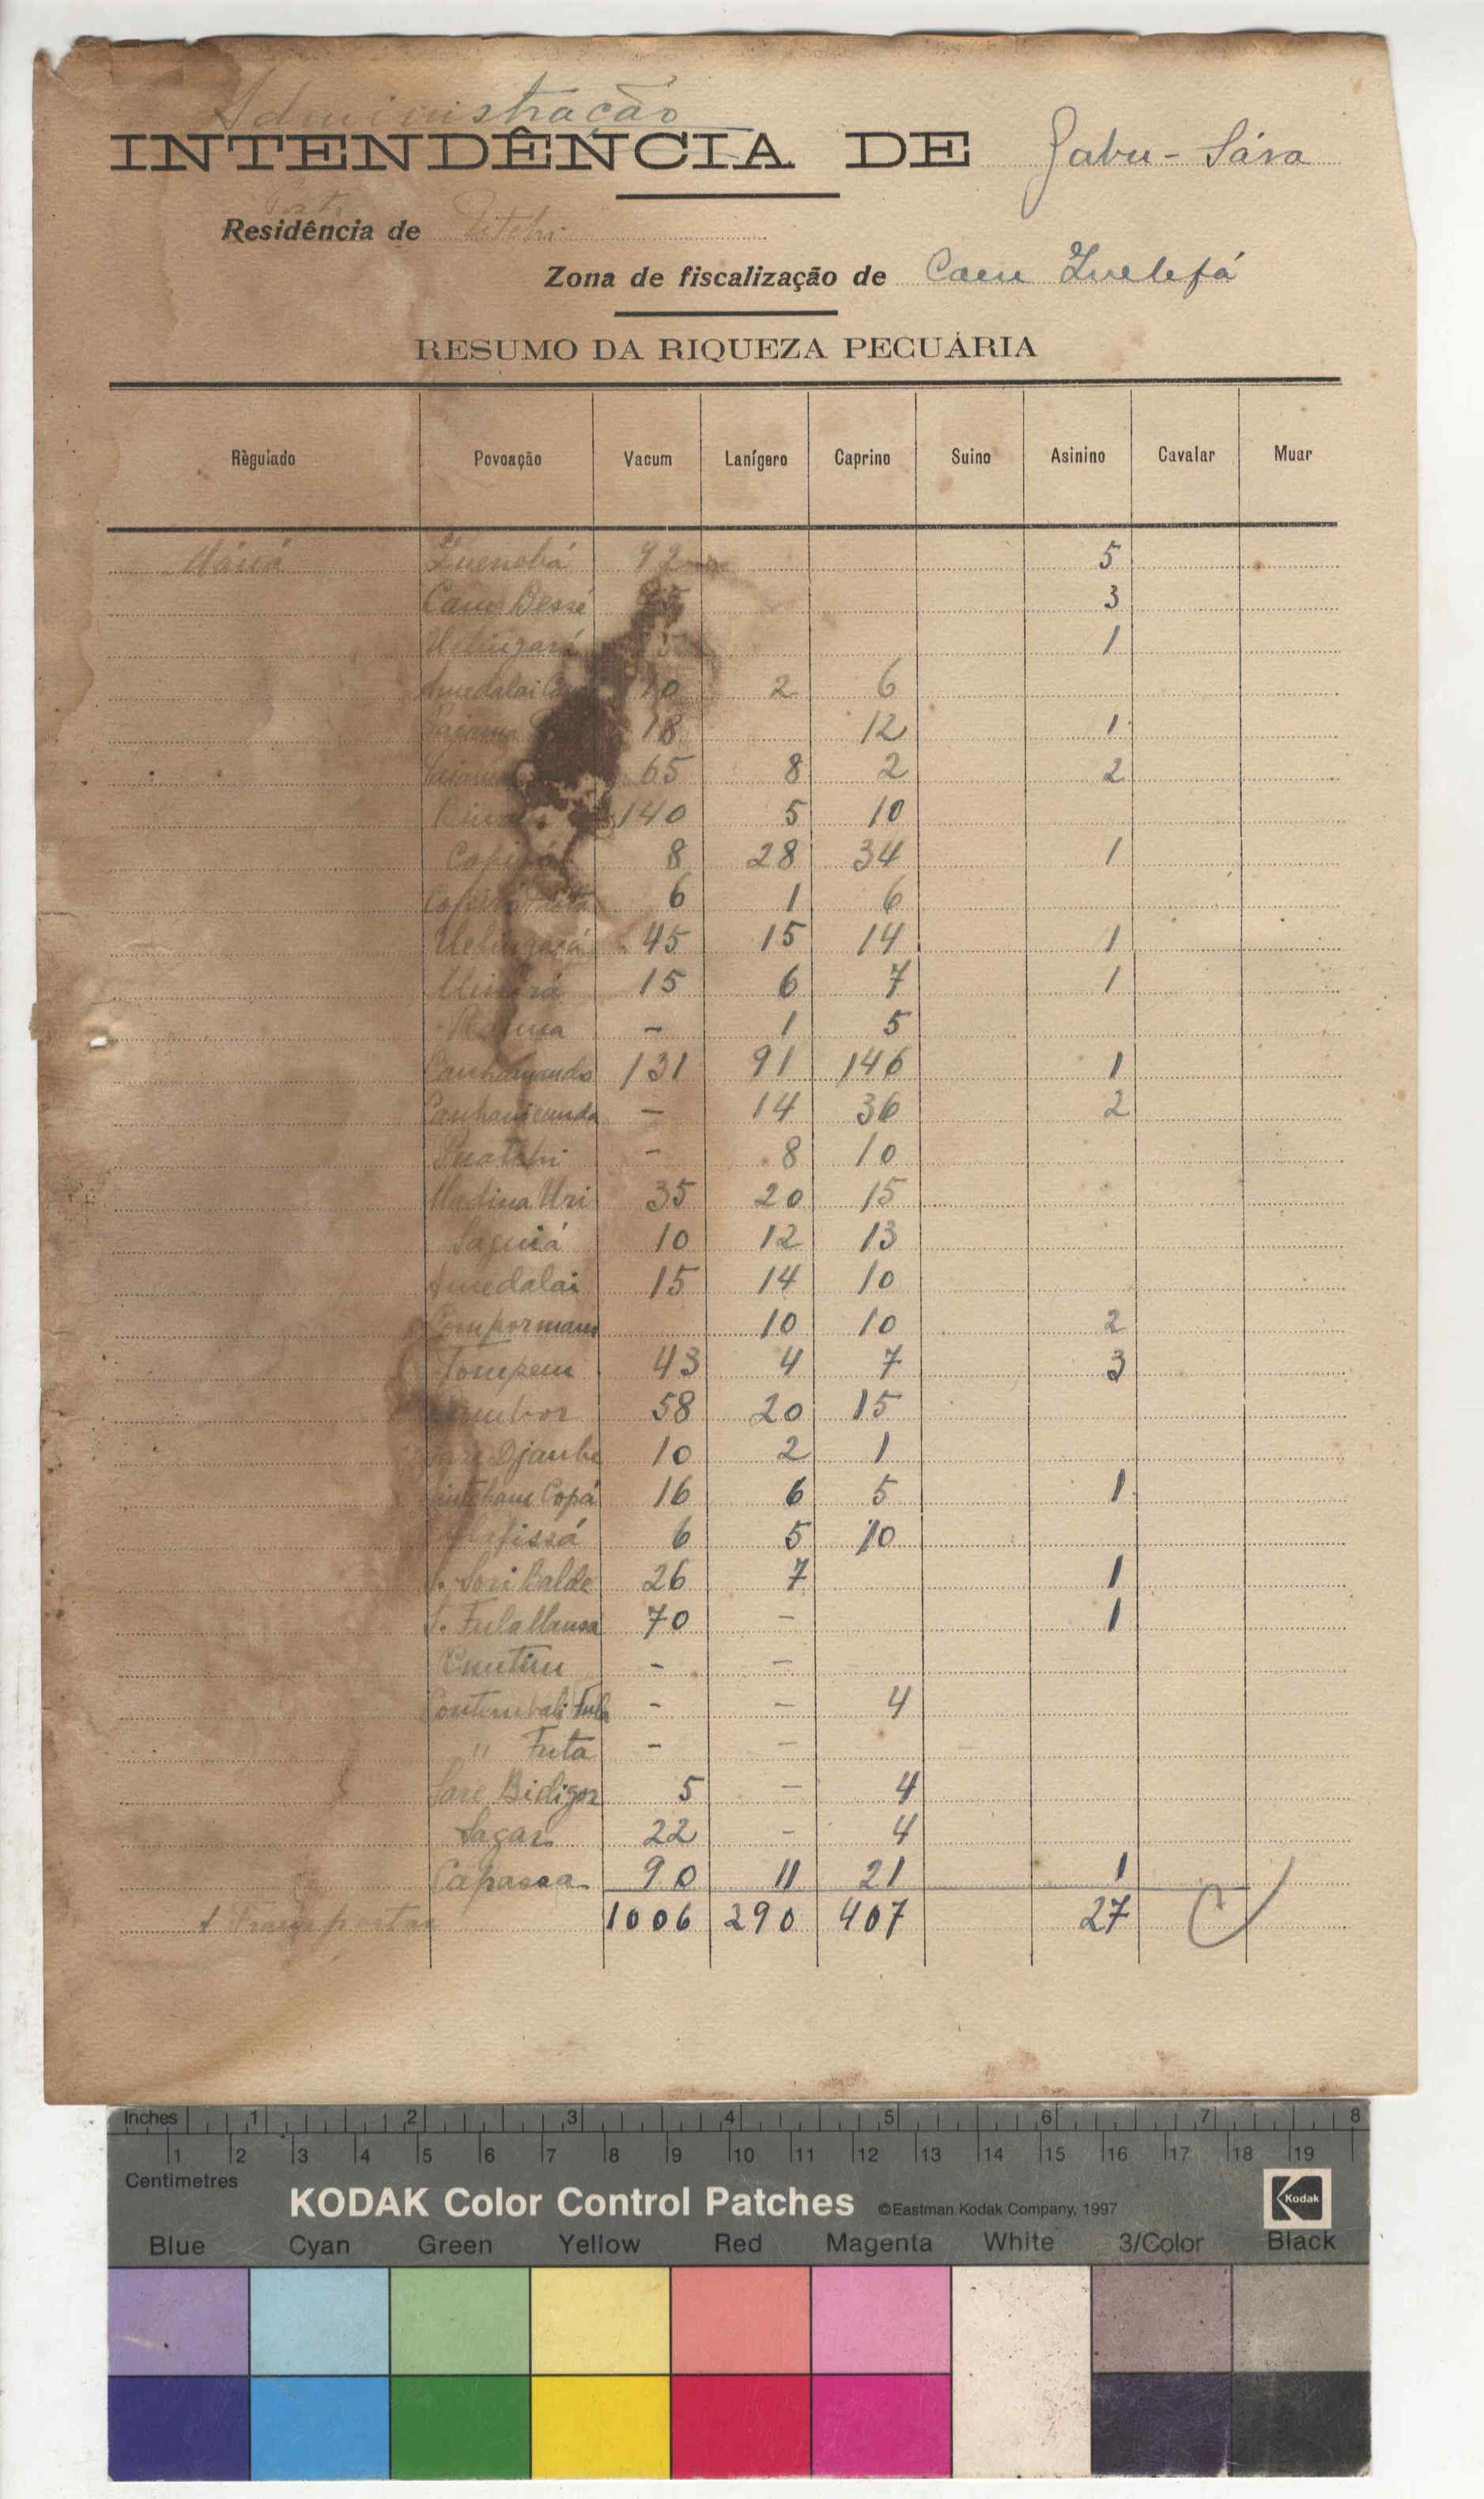 Administração
INTENDÊNCIA DE Gabu-Sára
Posto
Residência de Pitche
Zona de fiscalização de Cam Quelefá
RESUMO DA RIQUEZA PECUÁRIA
Règulado Povoação Vacum Lanígero Caprino Suino Asinino Cavalar Muar
Maná 92 5
Cam Dessé 3
Uelingará 1
Amedalai 10 2 6
18 12 1
65 8 2 2
140 5 10
8 28 34 1
6 1 6
Uelingará 45 15 14 1
15 6 7 1
- 1 5
Canhamundo 131 91 146 1
Canhanicunda - 14 36 2
- 8 10
Madina Uri 35 20 15
Saguiá 10 12 13
Amedalai 15 14 10
10 10 2
43 4 7 3
58 20 15
Djaube 10 2 1
Copá 16 6 5 1
6 5 10
S. Sori Balde 26 7 1
S. Fula Mansa 70 - 1
- -
Fula - - 4
" Futa - -
Sare Bidigor 5 - 4
Sagar 22 - 4
Capassa 90 11 21 1
A Transportar 1006 290 407 27
Inches 1 2 3 4 5 6 7 8
1 2 3 4 5 6 7 8 9 10 11 12 13 14 15 16 17 18 19
Centimetres
KODAK Color Control Patches ©Eastman Kodak Company, 1997 Kodak
Blue Cyan Green Yellow Red Magenta White 3/Color Black